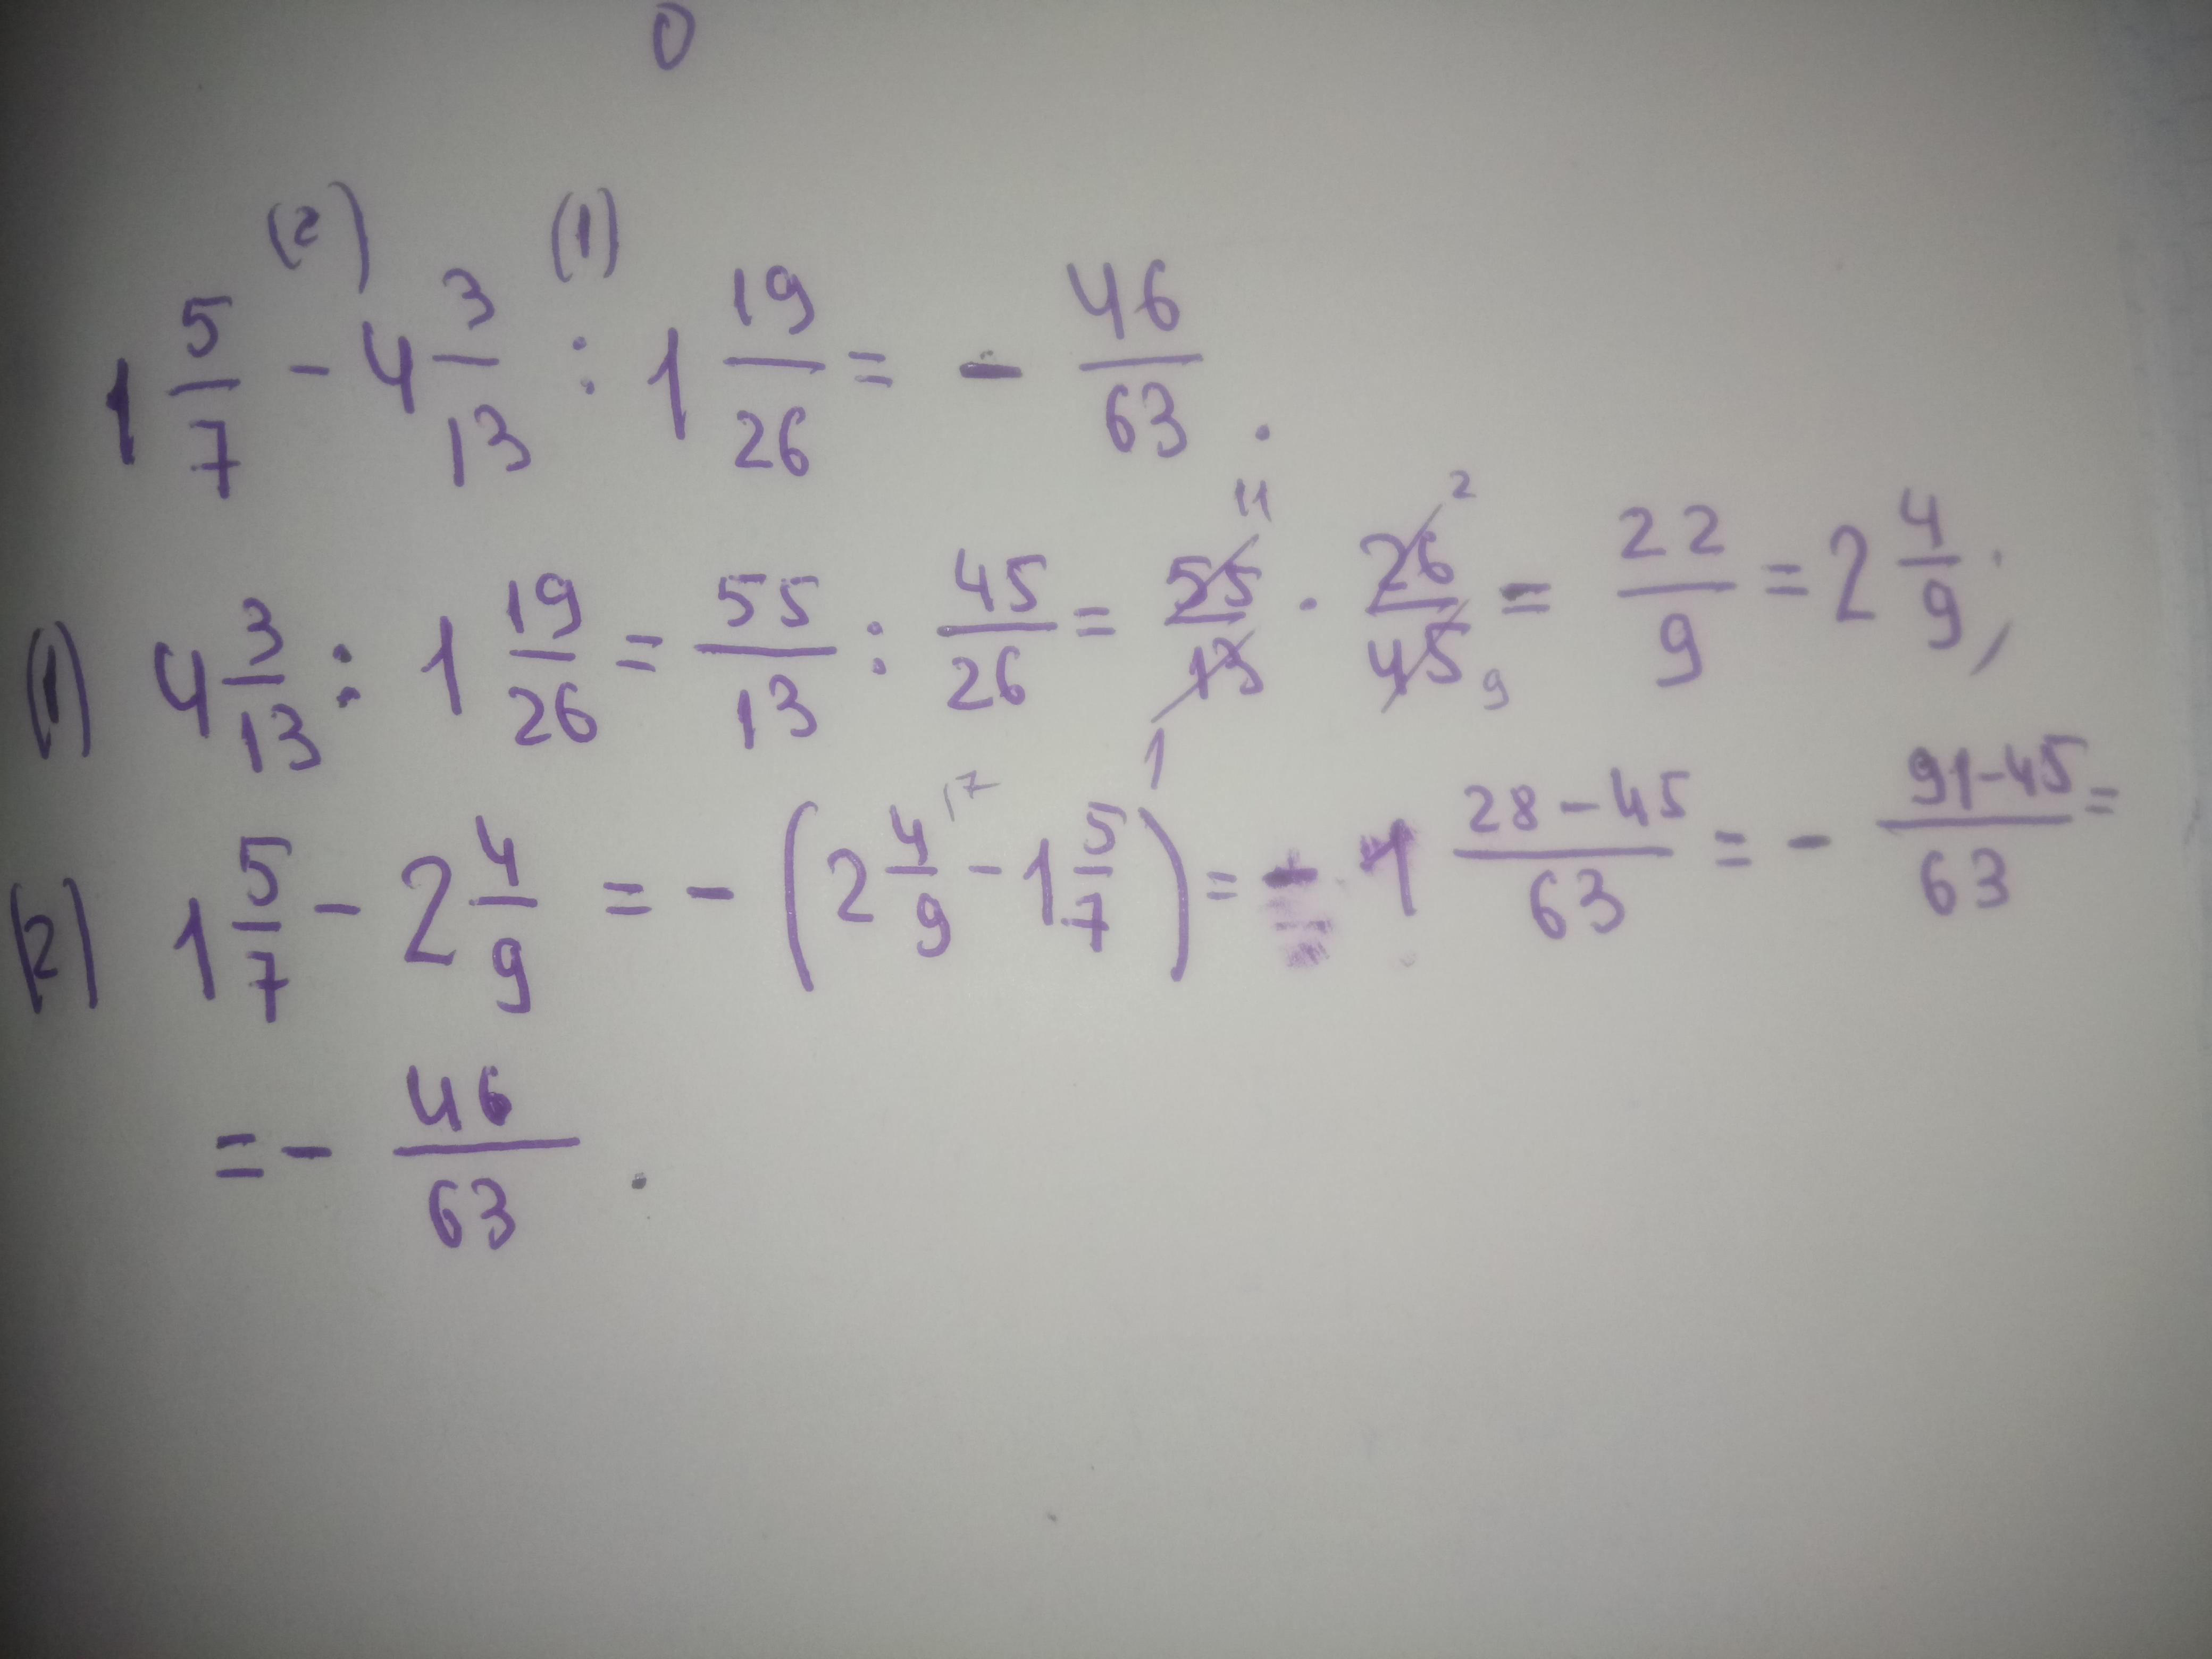 0
(2) (1)
1 5/7 - 4 3/13 : 1 19/26 = - 46/63 .
(1) 4 3/13 : 1 19/26 = 55/13 : 45/26 = 55/13 11 1 · 26/45 2 9 = 22/9 = 2 4/9 ;
(2) 1 5/7 - 2 4/9 = - ( 2 4/9 \7 - 1 5/7 ) = - 1 28-45/63 = - 91-45/63 =
= - 46/63 .